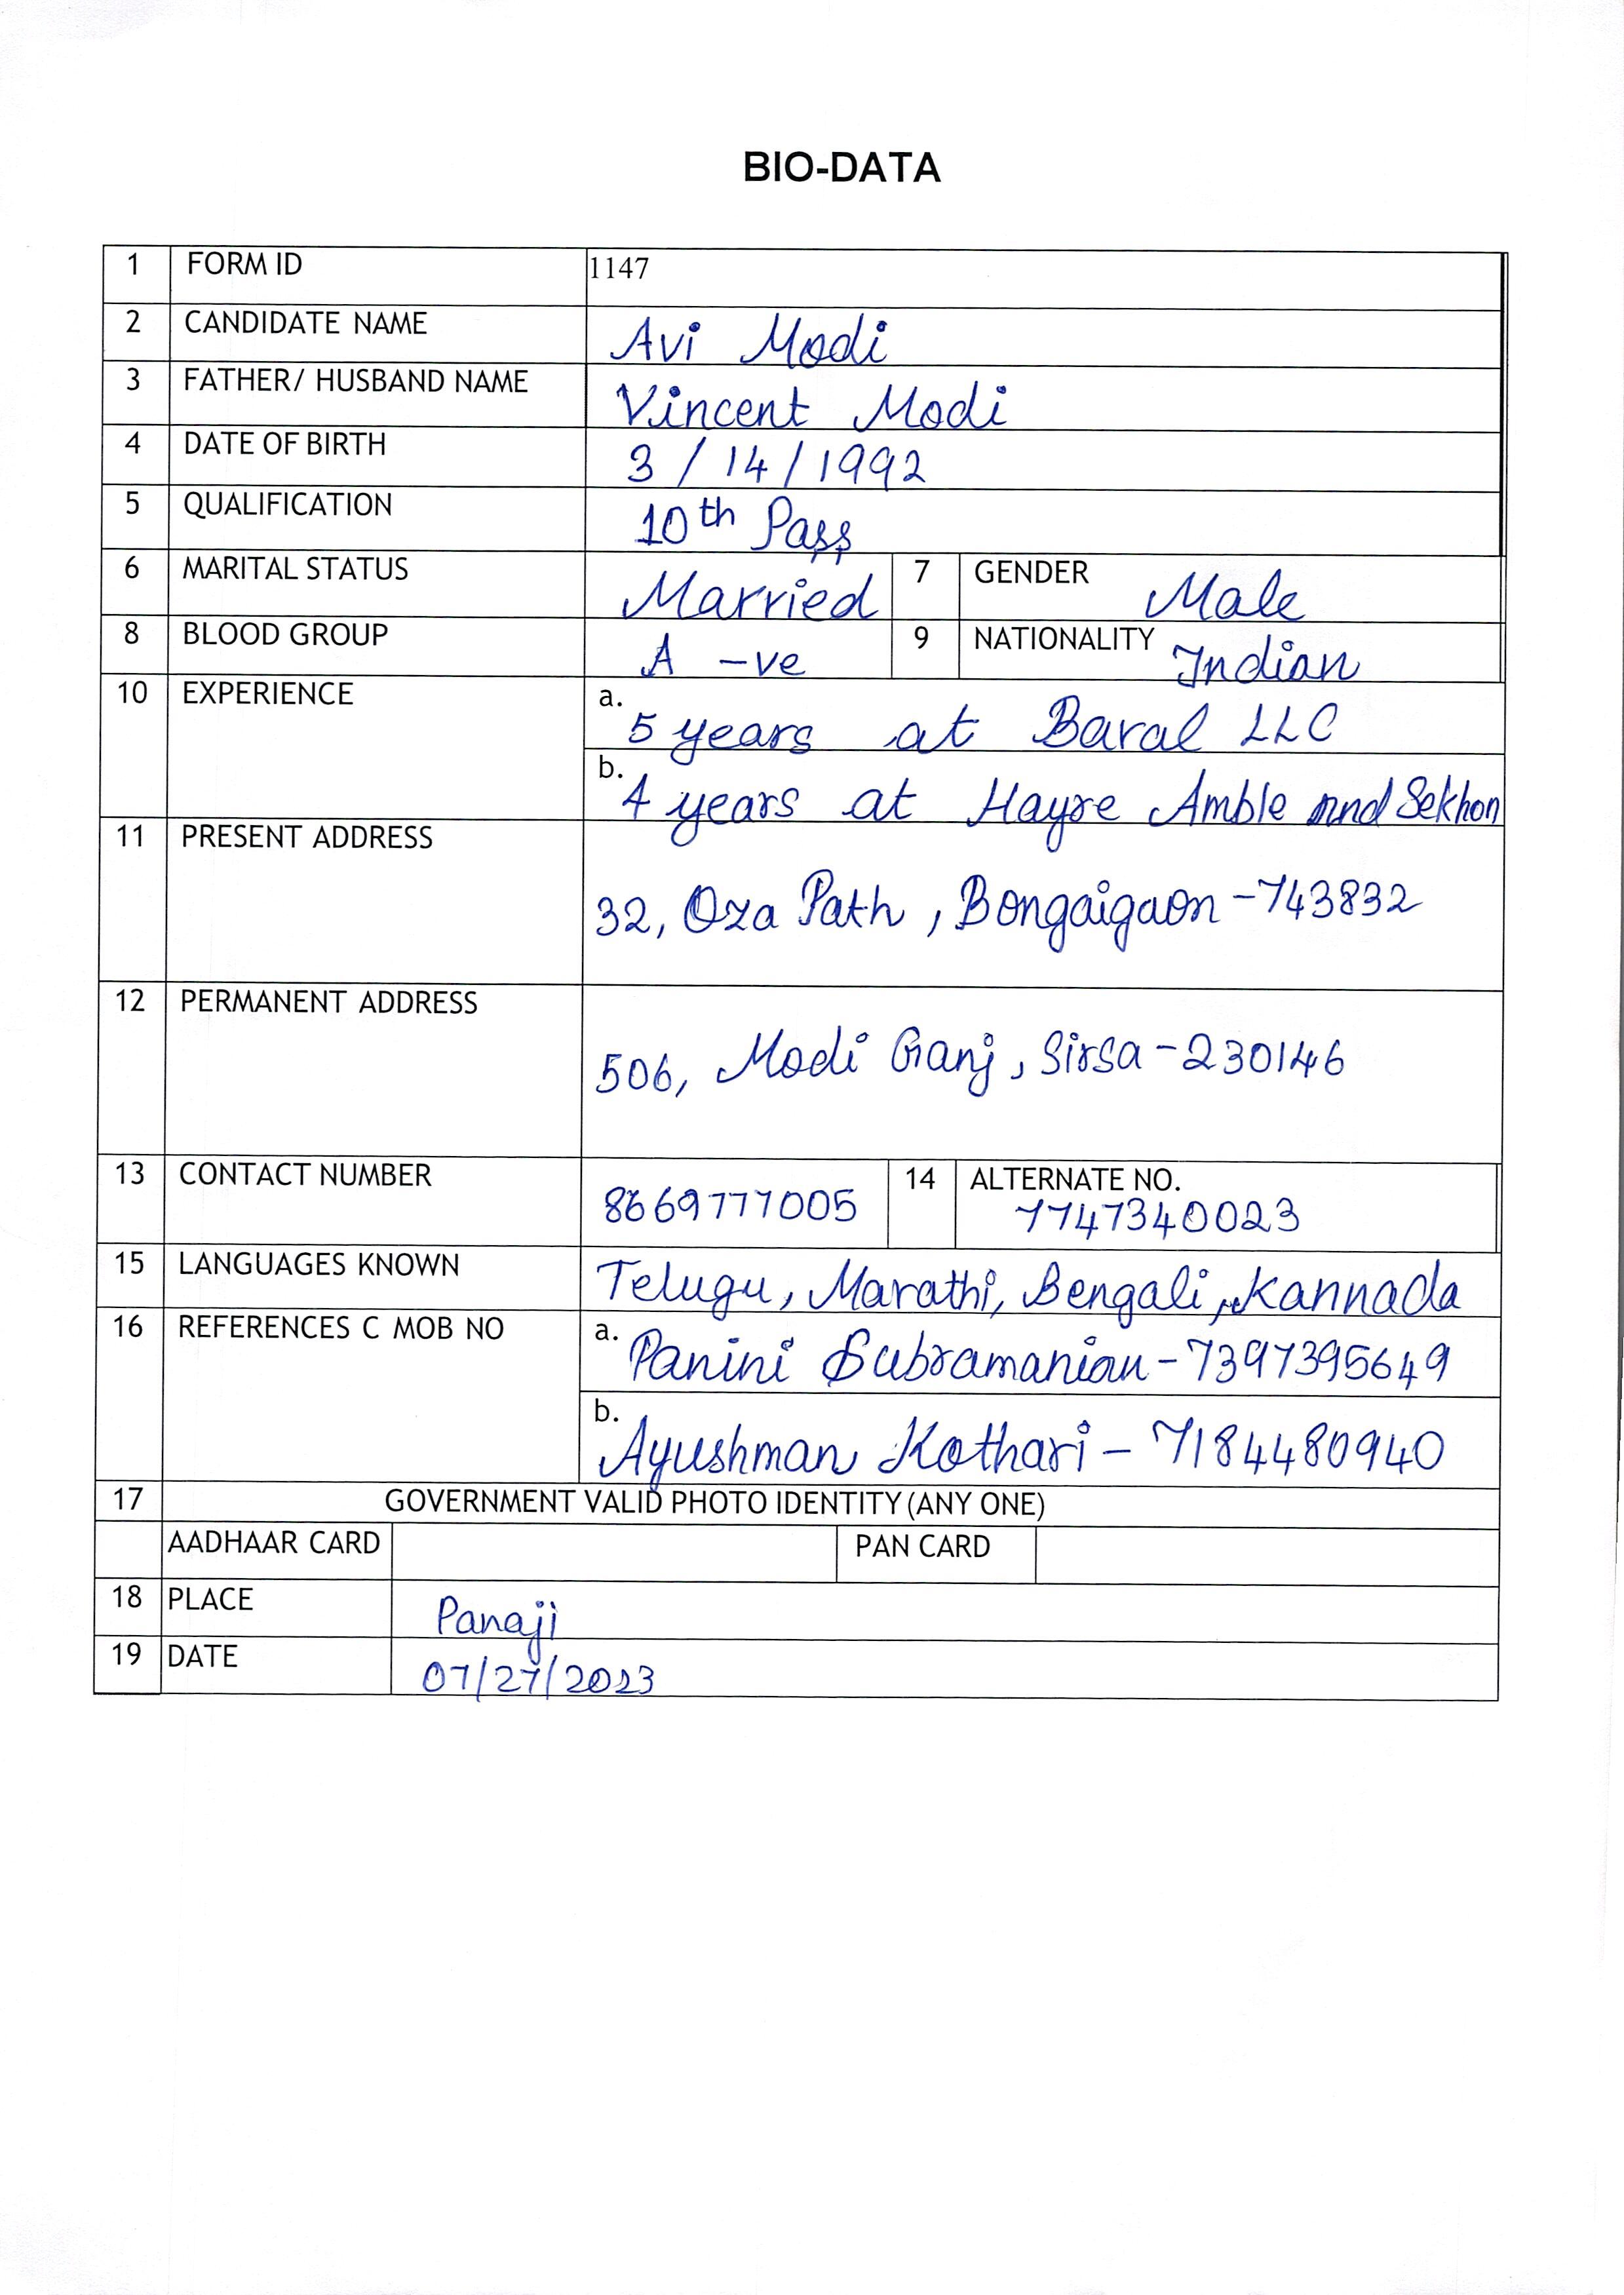 BIO-DATA
1 FORM ID 1147
2 CANDIDATE NAME Avi Modi
3 FATHER/ HUSBAND NAME Vincent Modi
4 DATE OF BIRTH 3/14/1992
5 QUALIFICATION 10th Pass
6 MARITAL STATUS Married 7 GENDER Male
8 BLOOD GROUP A -ve 9 NATIONALITY Indian
10 EXPERIENCE a. 5 years at Baral LLC
b. 4 years at Hayre Amble and Sekhon
11 PRESENT ADDRESS
32, Oza Path, Bongaigaon-743832
12 PERMANENT ADDRESS
506, Modi Ganj, Sirsa-230146
13 CONTACT NUMBER 8669777005 14 ALTERNATE NO. 7747340023
15 LANGUAGES KNOWN Telugu, Marathi, Bengali, Kannada
16 REFERENCES C MOB NO a. Panini Subramanian-7397395649
b. Ayushman Kothari-7184480940
17 GOVERNMENT VALID PHOTO IDENTITY (ANY ONE)
AADHAAR CARD PAN CARD
18 PLACE Panaji
19 DATE 07/27/2023